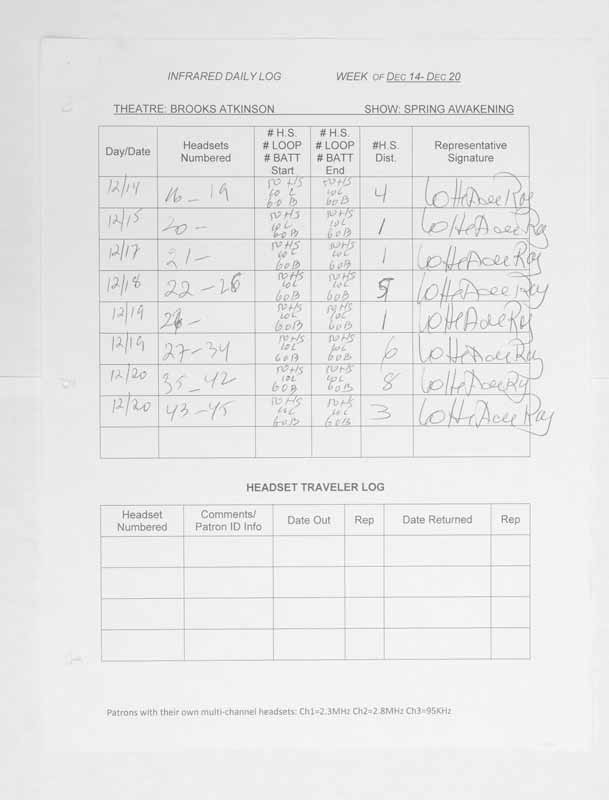 INFRARED DAILY LOG WEEK OF DEC 14- DEC 20
THEATRE: BROOKS ATKINSON SHOW: SPRING AWAKENING
Day/Date Headsets Numbered # H.S. # LOOP # BATT Start # H.S. # LOOP # BATT End #H.S. Dist. Representative Signature
12/14 16-19 50 HS 10 L 60 B 50 HS 10 L 60 B 4
12/15 20- 50 HS 10 L 60 B 50 HS 10 L 60 B 1
12/17 21- 50 HS 10 L 60 B 50 HS 10 L 60 B 1
12/18 22-26 50 HS 10 L 60 B 50 HS 10 L 60 B 5
12/19 26- 50 HS 10 L 60 B 50 HS 10 L 60 B 1
12/19 27-34 50 HS 10 L 60 B 50 HS 10 L 60 B 6
12/20 35-42 50 HS 10 L 60 B 50 HS 10 L 60 B 8
12/20 43-45 50 HS 10 L 60 B 50 HS 10 L 60 B 3
HEADSET TRAVELER LOG
Headset Numbered Comments/ Patron ID Info Date Out Rep Date Returned Rep
Patrons with their own multi-channel headsets: Ch1=2.3MHz Ch2=2.8MHz Ch3=95KHz